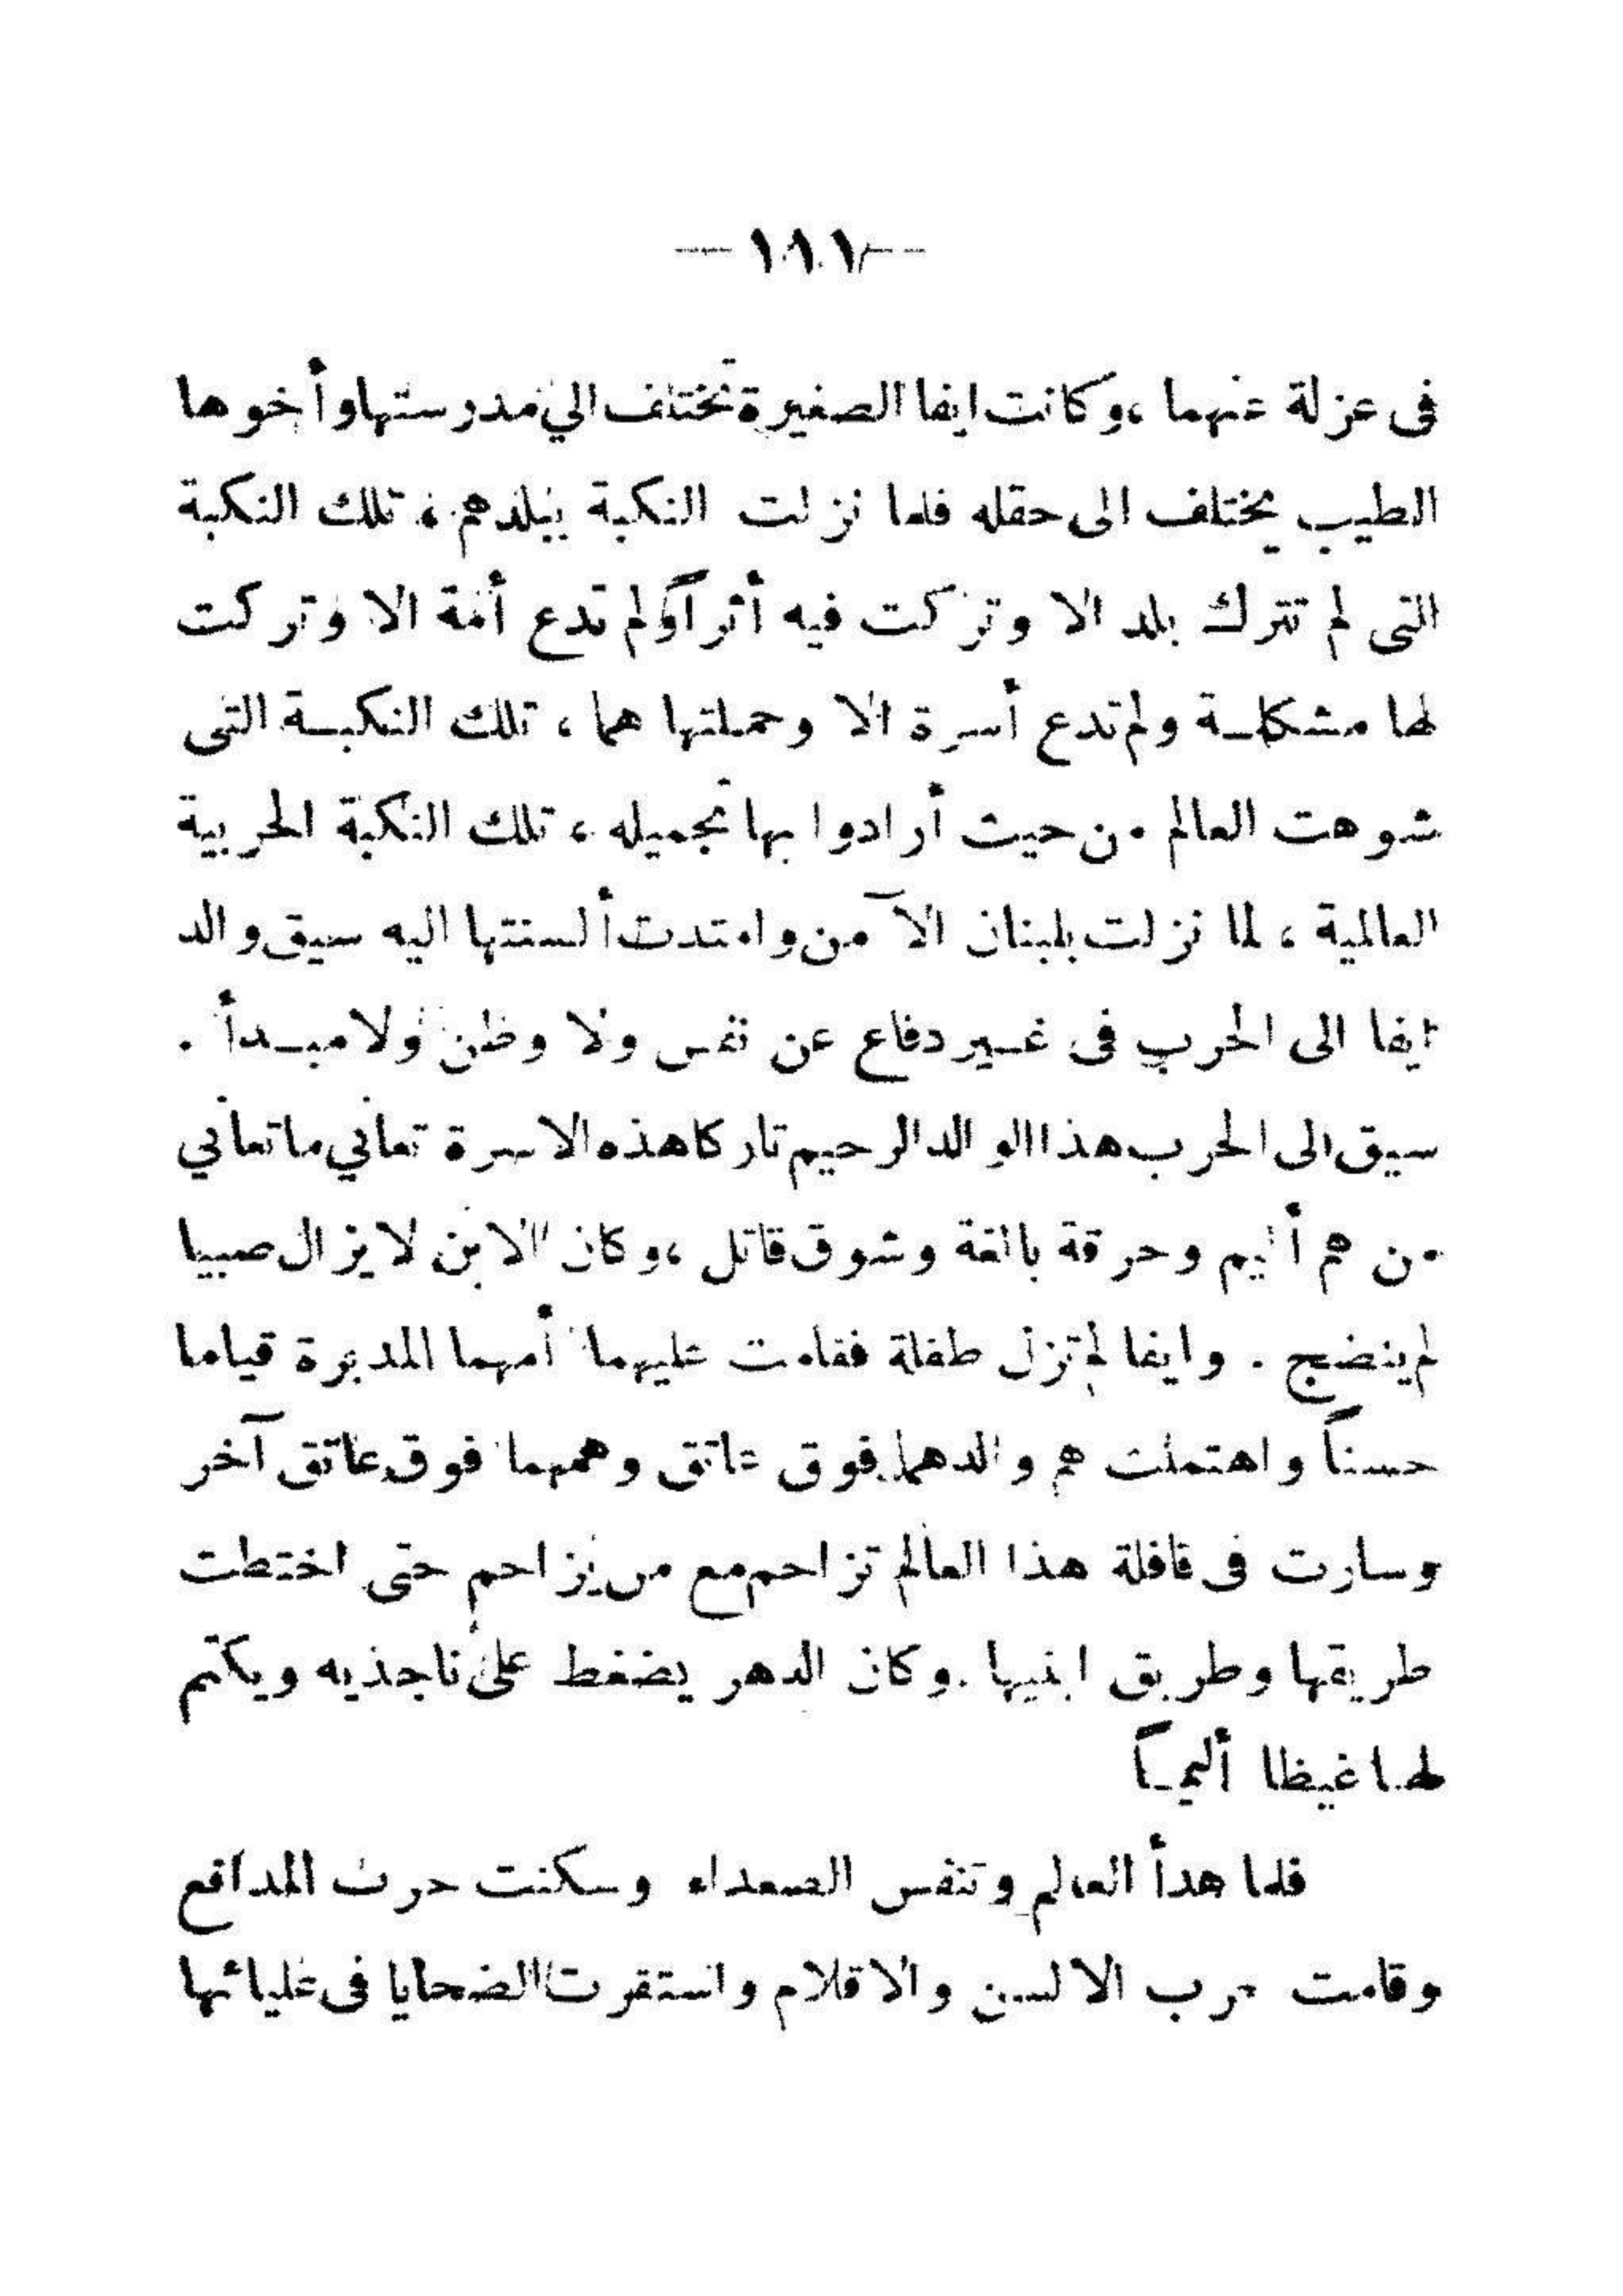 — ١٩١ —
فى عزلة عنهما ،وكانت ايفا الصغيرة تختلف الي مدرستها وأخوها
الطيب يختلف الى حقله فلما نزلت النكبة ببلدهم ، تلك النكبة
التى لم تترك بلد الا وتركت فيه أثراً ولم تدع أمة الا وتركت
لها مشكلة ولم تدع أسرة الا وحملتها هما ، تلك النكبة التى
شوهت العالم من حيث أرادوا بها تجميله ، تلك النكبة الحربية
العالمية ، لما نزلت بلبنان الآمن وامتدت ألسنتها اليه سيق والد
ايفا الى الحرب فى غير دفاع عن نفس ولا وطن ولا مبدأ .
سيق الى الحرب هذا الوالد الرحيم تاركا هذه الاسرة تعاني ما تعاني
من هم أليم وحرقة بالغة وشوق قاتل ،وكان الابن لا يزال صبيا
لم ينضج . وايفا لم تزل طفلة فقامت عليهما أمهما المدبرة قياما
حسناً واهتملت هم والدهما فوق عاتق وهمهما فوق عاتق آخر
وسارت فى قافلة هذا العالم تزاحم مع من يزاحم حتى اختطت
طريقها وطريق ابنيها .وكان الدهر يضغط على ناجذيه ويكتم
لها غيظا أليماً
فلما هدأ العالم وتنفس الصعداء وسكنت حرب المدافع
وقامت حرب الالسن والاقلام واستقرت الضحايا فى عليائها